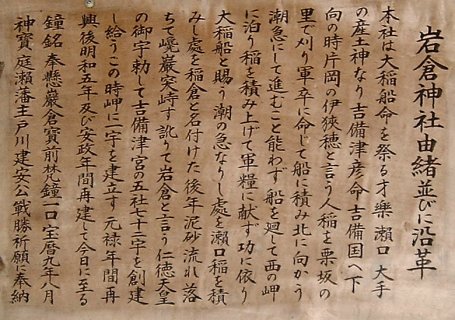 岩倉神社由緒並びに沿革
本社は大稲船命を祭る才楽 瀬口 大手
の産土神なり吉備津彦命吉備国へ下
向の時片岡の伊狭穂と言う人稲を栗坂の
里で刈り軍卒に命じて船に積み北に向かう
潮急にして進むこと能わず船を廻して西の岬
に泊り稲を積み上げて軍糧に献ず功に依り
大稲船と賜う潮の急なりし處を瀬口稲を積
みし處を稲倉と名付けた後年泥砂流れ落
ちて巉巌突峙す訛りて岩倉と言う仁徳天皇
の御宇勅して吉備津宮の五社七十二宇を創建
し給うこの時岬に一宇を建立す元禄年間再
興後明和五年及び安政年間再建して今日に至る
鐘銘 奉懸巌倉寳前梵鐘一口宝暦九年八月
神寶 庭瀬藩主戸川建安公戦勝祈願に奉納